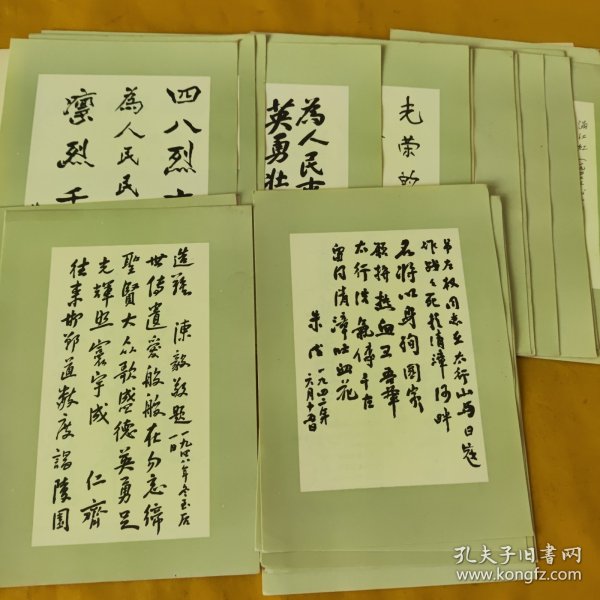 四八烈
為人民
凛烈千
為人民
英勇壯
光荣
滿江紅
往来邯鄲道数度謁陵园
光輝照寰宇成 仁齊
聖賢大众歌盛德英勇足
世传遺愛般般在勿忘締
造艱 陳毅敬題 一九四六年冬至后
一日
吊左权同志在太行山与日寇
作战々死於清漳河畔
名将以身殉国家
願将熱血卫吾華
太行浩氣傳千古
留得清漳吐血花
朱德
一九四二年
六月十五日
孔夫子旧书网
www.kongfz.com